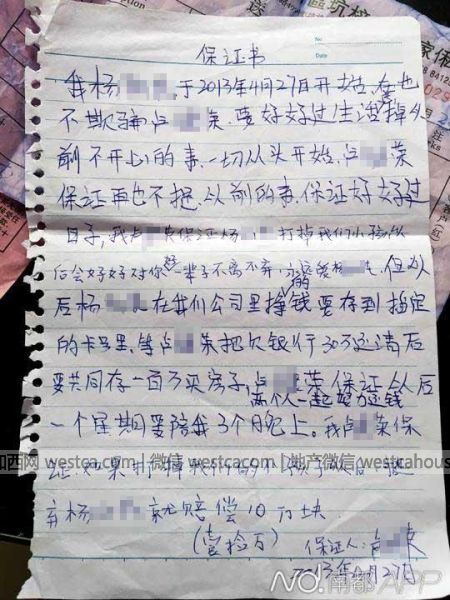 No.
Date
保证书
我杨 于2013年4月27日开始,在也
不欺骗卢 荣,要好好过生活,掉以
前不开心的事,一切从头开始,卢 荣
保证再也不把从前的事,保证好好过
日子,我卢 荣保证杨 打掉我们小孩从
后会好好对你 一辈子不离不弃,永远 的爱杨 ,但从
后杨 在我们公司里挣钱要存到指定
的卡号里,等卢 荣把欠银行30万还清后
要共同存一百万买房子,卢 荣保证从后
两个人一起努力还钱
一个星期要陪我3个晚上。我卢 荣保
证如果打掉我们的小孩子从后
弃杨 就赔偿10万块
(壹拾万) 保证人:卢 荣
2013年4月27日
加西网 westca.com | 地产微信 westcahous
NO. 南都APP